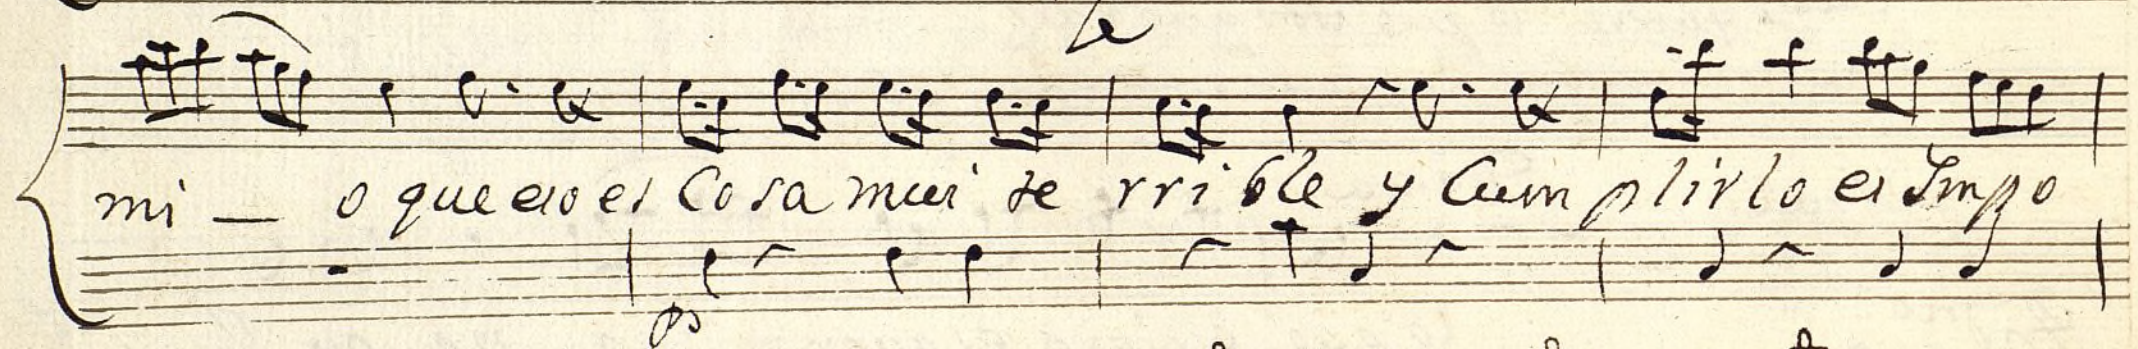 Le
mi _ o que eso es Cosa mui te rrible y Cum plirlo es Impo
p